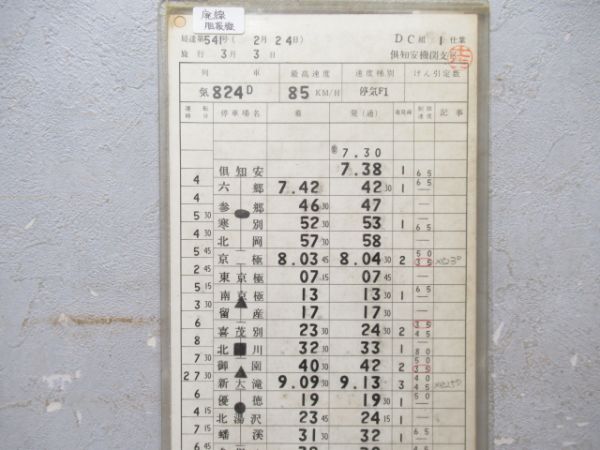 廃線
胆振線
局達第541号( 2月24日) DC組 1仕業
施行 3月 3日 倶知安機関支区
列 車 最高速度 速度種別 けん引定数
気824D 85KM/H 停気F1
運転時分 停車場名 着 発(通) 着発線 制限速度 記事
7.30
倶知安 7.38 1 65
4 六郷 7.42 42 30 1 65
4 参郷 46 30 47
5 30 寒別 52 30 53 1 65
4 30 北岡 57 30 58
5 45 京極 8.03 45 8.04 30 2 50 35
2 45 東京極 07 15 07 45
5 15 南京極 13 13 30 1 65
3 30 留産 17 17 30
6 喜茂別 23 30 24 30 2 35 45
8 北川 32 30 33 1 80
7 30 御園 40 30 42 2 50 35
27 30 新大滝 9.09 30 9.13 3 40 45
6 優徳 19 19 30 1 50
4 15 北湯沢 23 45 24 15 1
7 15 蟠渓 31 30 32 1 65
6 45